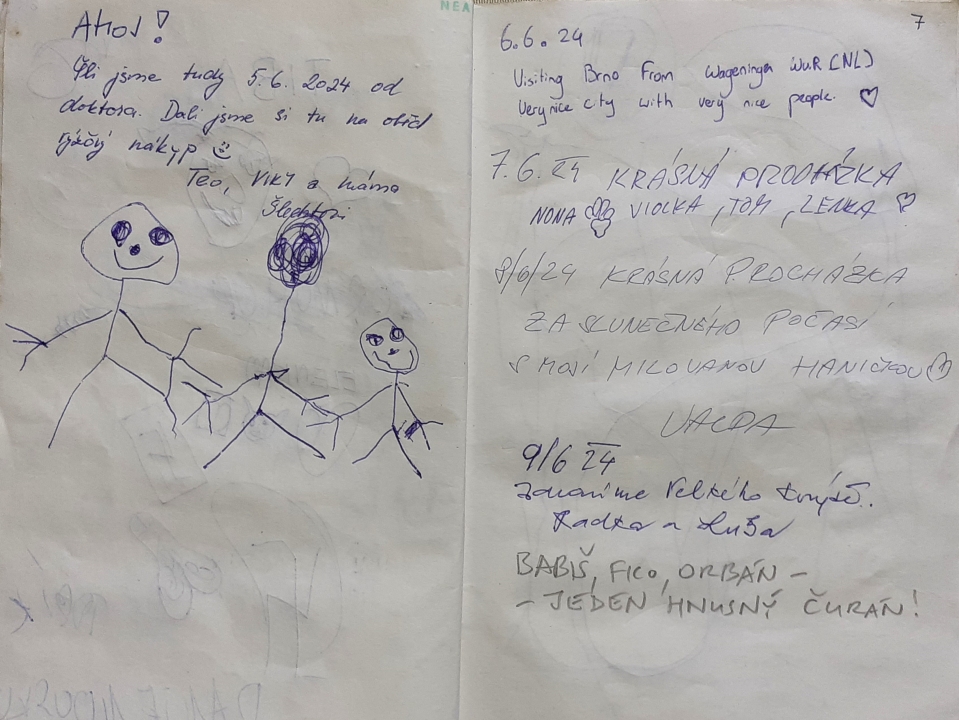 Ahoj!
Šli jsme tudy 5.6. 2024 od
doktora. Dali jsme si tu na oběd
rýžový nákyp
Teo, Viky a máma
Šlechtovi
NEA
7
6.6. 24
Visiting Brno From Wageningen WUR (NL)
Very nice city with very nice people. ♡
7.6. 24 KRÁSNÁ PROCHÁZKA
NONA VIOLKA, TOM, LENKA ♡
8/6/24 KRÁSNÁ PROCHÁZKA
ZA SLUNEČNÉHO POČASÍ
S MOJÍ MILOVANOU HANIČKOU
9/6 24
Zdravíme Velkého
Radka a
BABIŠ, FICO, ORBÁN –
– JEDEN HNUSNÝ ČURÁN!